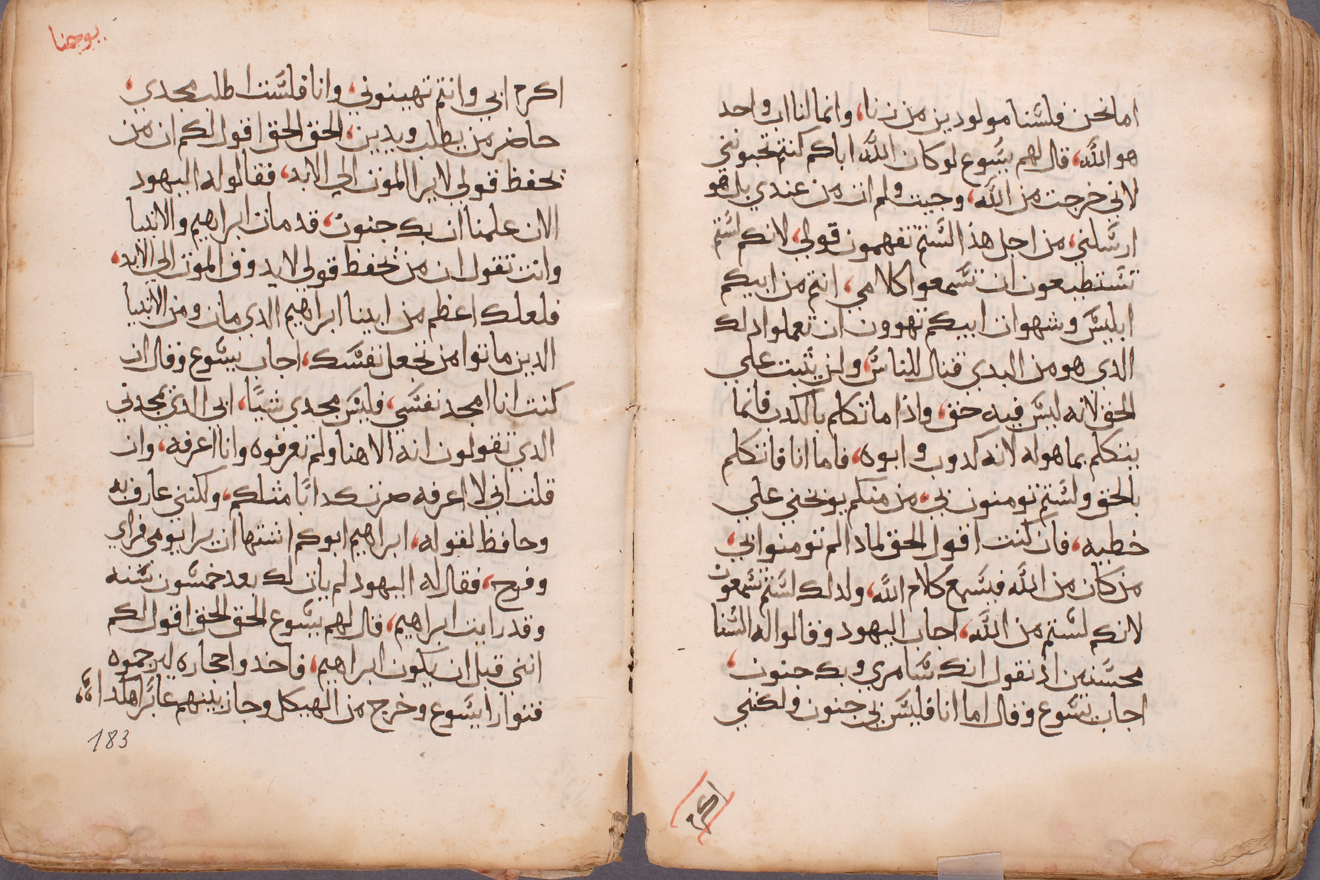 اما نحن فلسنا مولودين من زنا، وانما لنا اب واحد
هو الله، قال لهم يسوع لو كان الله اباكم كنتم تحبوني
لاني خرجت من الله، وجيت ولم ات من عندي بل هو
ارسلني، من اجل هذا لستم تفهمون قولي، لانكم لستم
تستطيعون ان تسمعوا كلامي، انتم من ابيكم
ابليس وشهوات ابيكم تهوون ان تعملوا ذلك
الذي هو من البدي قتال للناس، ولن يثبت علي
الحق لانه ليس فيه حق، واذا ما تكلم بالكدب فانما
يتكلم بما هو له لانه كدوب وابوه، فاما انا فاتكلم
بالحق ولستم تومنون بي، من منكم يوبخني علي
خطيه، فان كنت اقول الحق لماذا لم تومنوا بي،
من كان من الله فيسمع كلام الله، ولذلك لستم تسمعون
لانكم لستم من الله، اجاب اليهود وقالوا له السنا
محسنين اذ نقول انك سامري وبك جنون،
اجاب يسوع وقال اما انا فليس بي جنون ولكنني
يوحنا
اكرم ابي وانتم تهينوني، وانا فلست اطلب مجدي،
حاضر من يطلب ويدين، الحق الحق اقول لكم ان من
يحفظ قولي لا يرا الموت الي الابد، فقالوا له اليهود
الان علمنا ان بك جنون، قد مات ابراهيم والانبيا
وانت تقول ان من يحفظ قولي لا يدوق الموت الي الابد،
فلعلك اعظم من ابينا ابراهيم الدي مات ومن الانبيا
الدين ماتوا من تجعل نفسك، اجاب يسوع وقال ان
كنت انا امجد نفسي، فليس مجدي شيًا، ابي الدي يمجدني
الدي تقولون انه الاهنا ولم تعرفوه وانا اعرفه، وان
قلت اني لا اعرفه صرت كدابًا مثلكم، ولكنني عارف به
وحافظ لقوله، ابراهيم ابوكم اشتها ان يرا يومي فراي
وفرح، فقال له اليهود لم يات لك بعد خمسون سنه
وقد رايت ابراهيم، قال لهم يسوع الحق الحق اقول لكم
انني قبل ان يكون ابراهيم، فاخدوا حجاره ليرجموه
فتوارا يسوع وخرج من الهيكل وجاز بينهم عابرًا هكدا
183